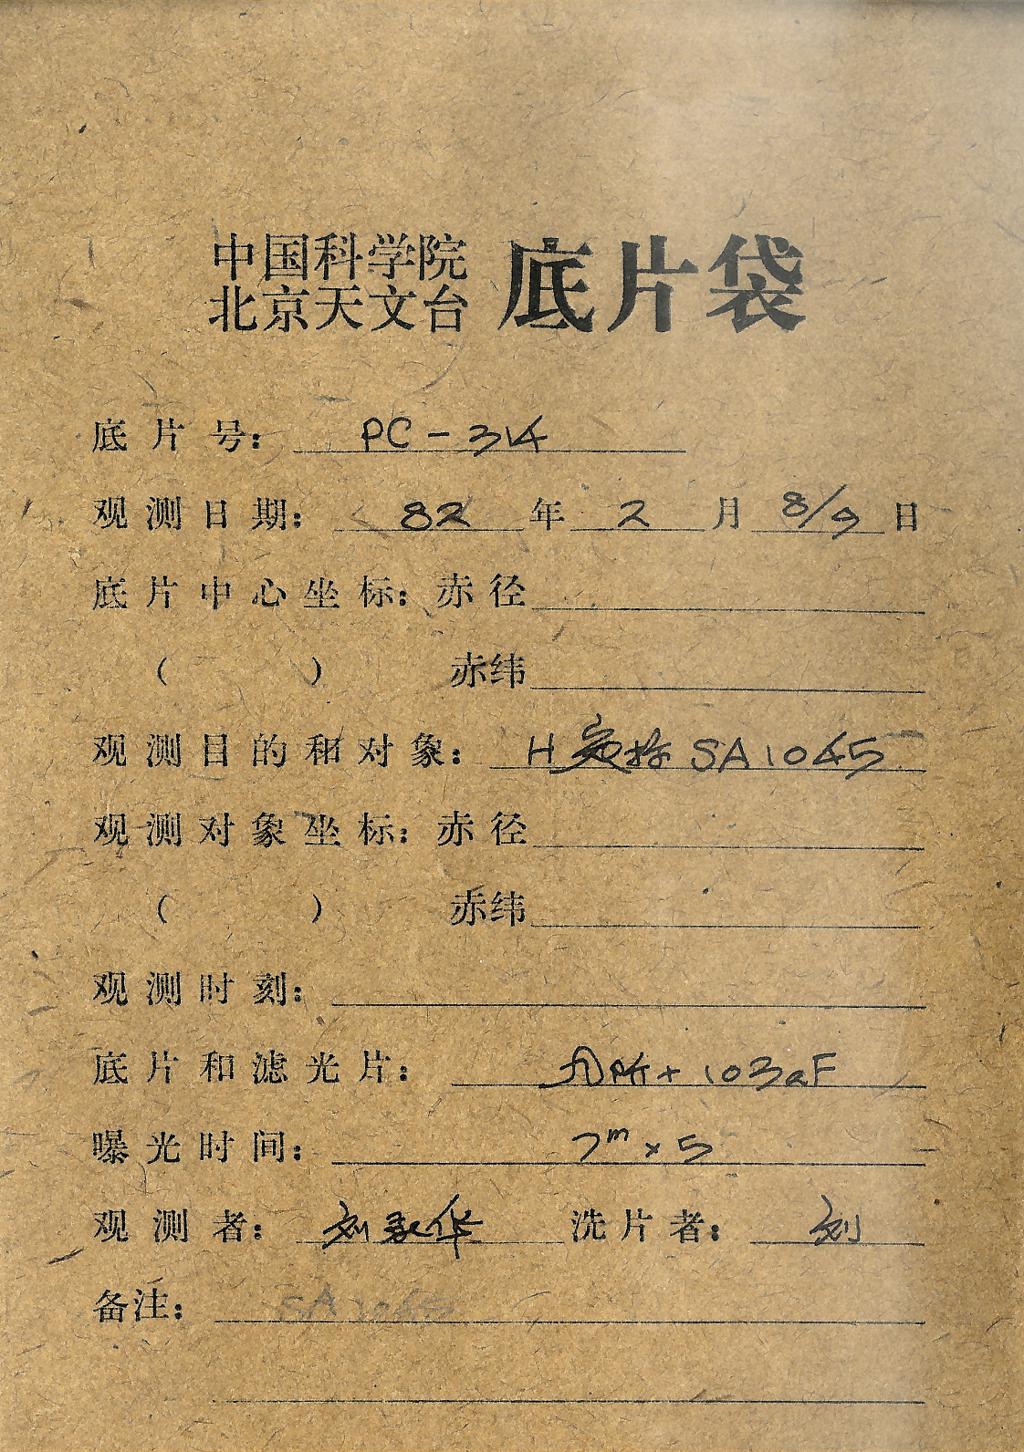 中国科学院
北京天文台 底片袋
底片号： PC-314
观测日期： 82 年 2 月 8/9 日
底片中心坐标：赤径
（ ） 赤纬
观测目的和对象： H SA1045
观测对象坐标：赤径
（ ） 赤纬
观测时刻：
底片和滤光片： + 103aF
曝光时间： 7m x 5
观测者： 刘 华 洗片者： 刘
备注： SA 1045